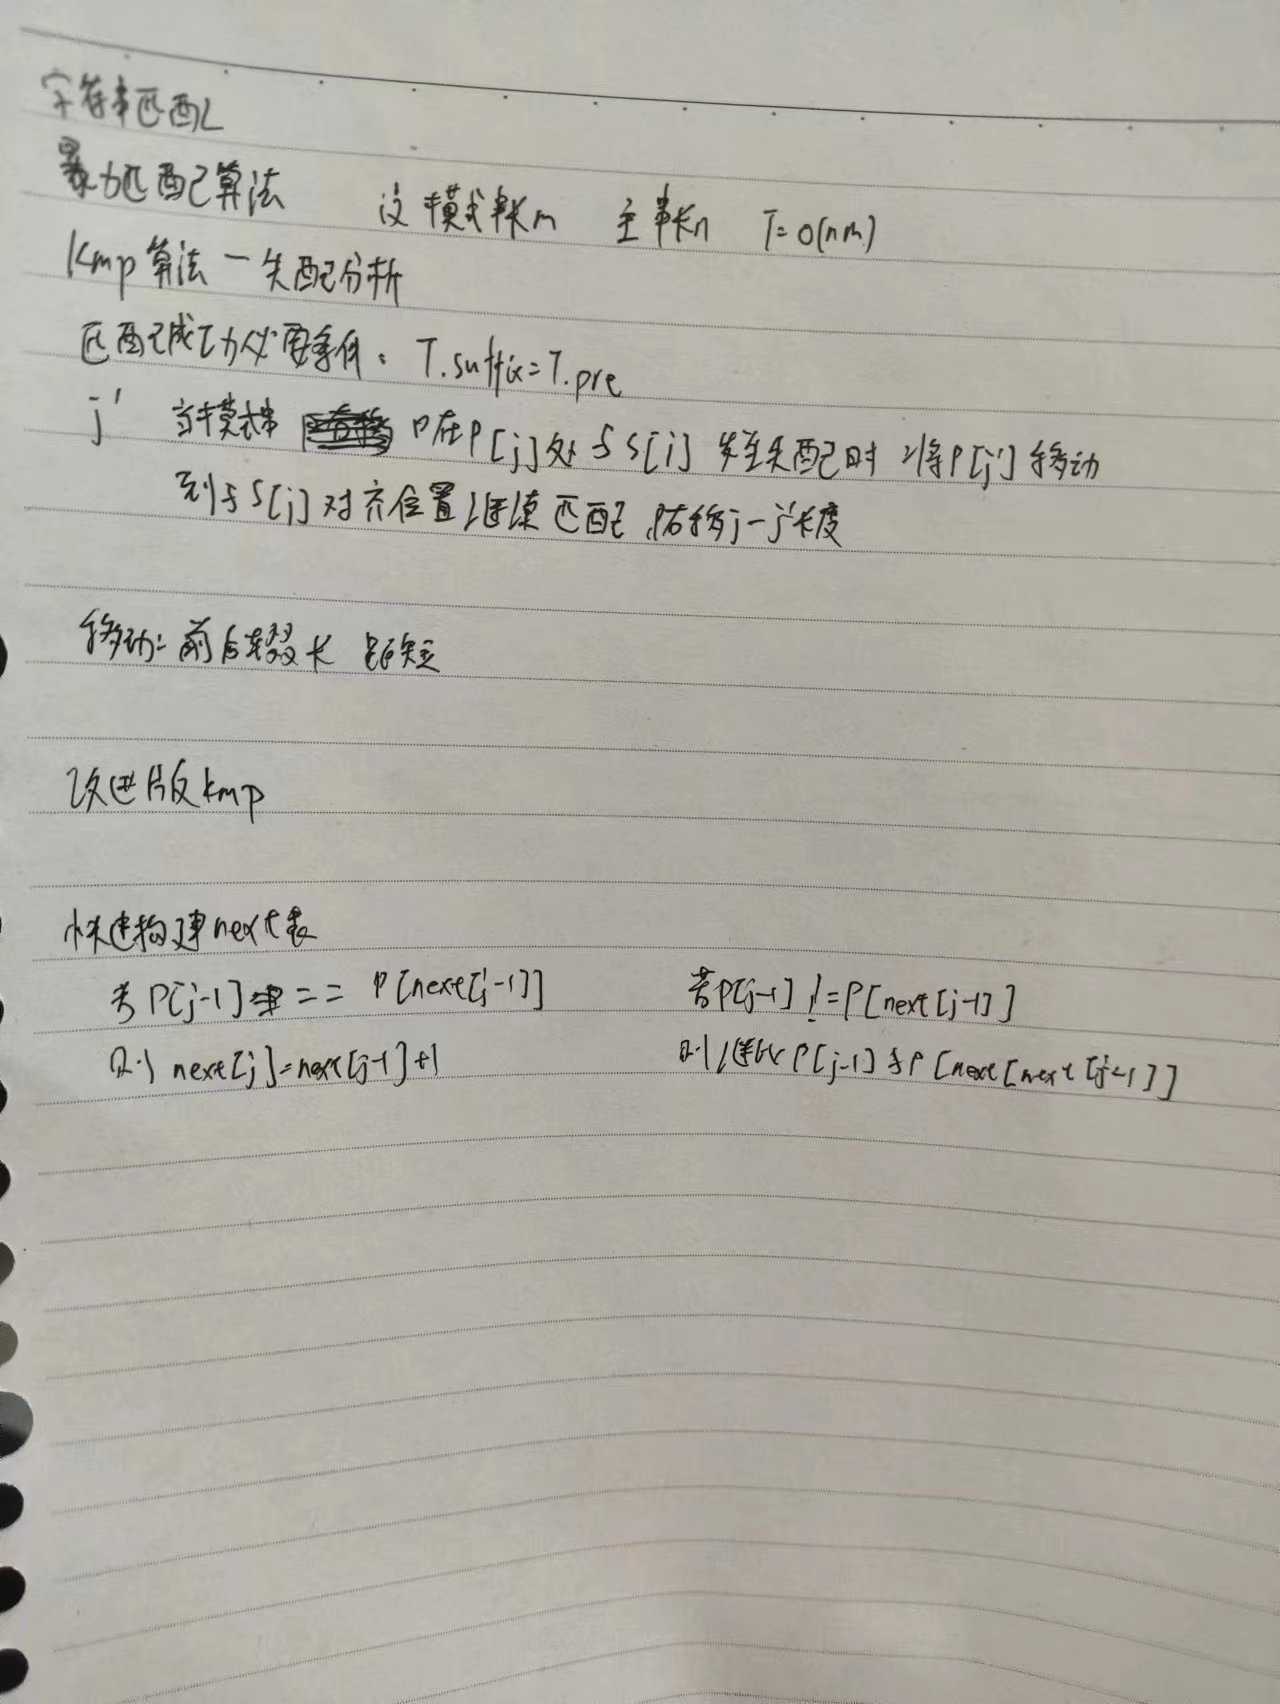 字符串匹配
暴力匹配算法 设模式串长m 主串长n T=O(nm)
kmp算法－失配分析
匹配成功必要条件：T.suffix=T.pre
j' 当模式串 P在P[j]处与S[i]发生失配时 将P[j']移动
到与S[j]对齐位置继续匹配，P右移j-j'长度
移动：前后缀长 距短
改进版kmp
快速构建next表
若P[j-1] == P[next[j-1]] 若P[j-1] != P[next[j-1]]
则 next[j]=next[j-1]+1 则继续比P[j-1]与P[next[next[j-1]]